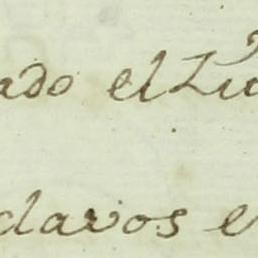 ado el Lu
clavos e